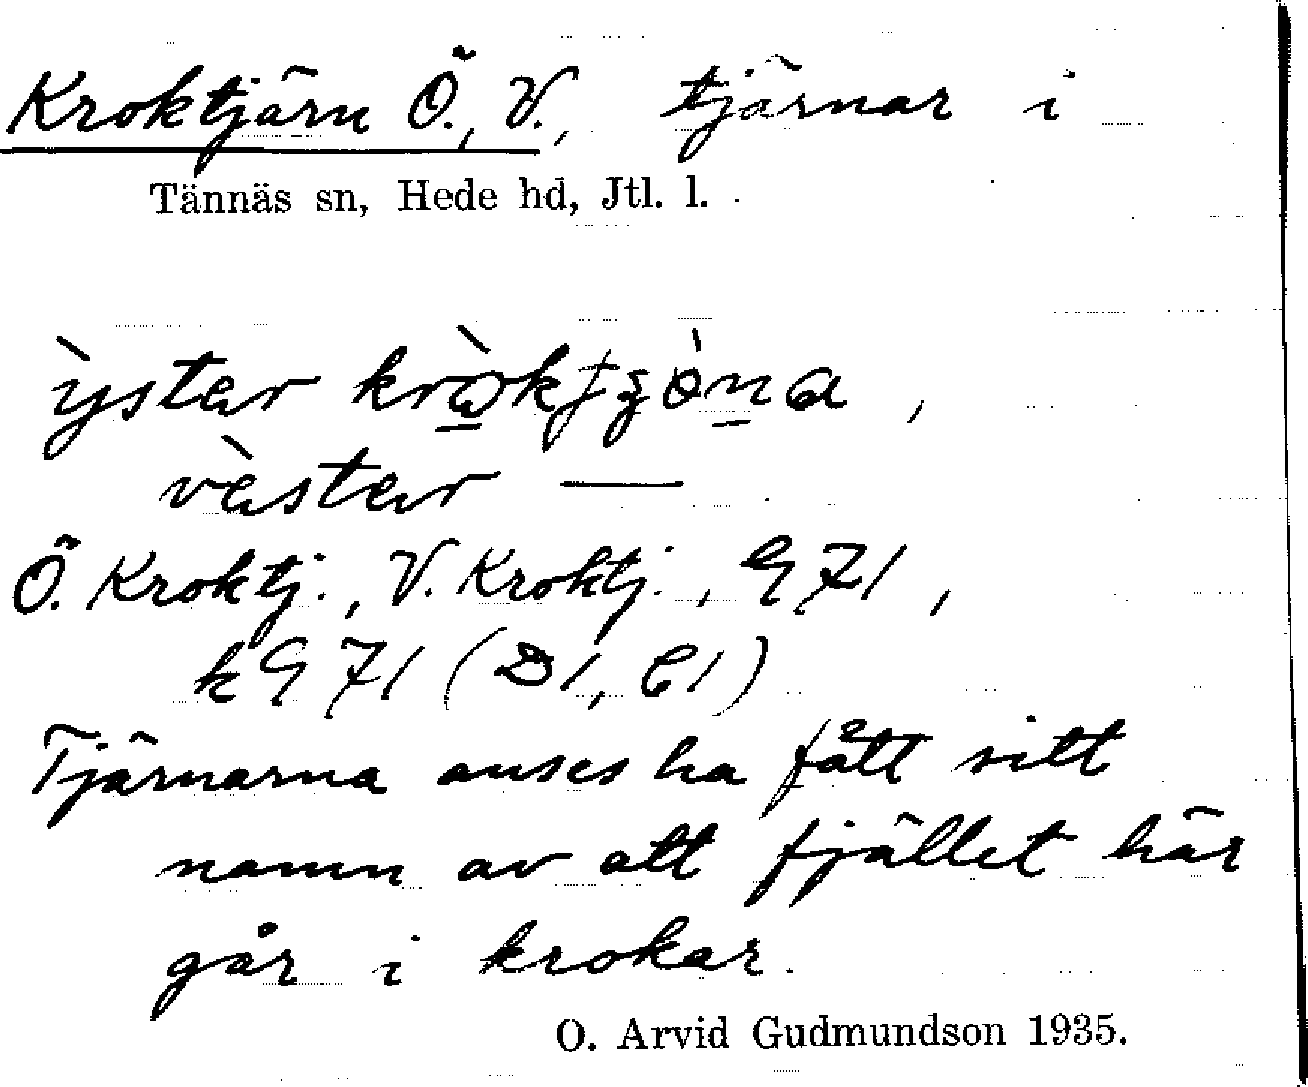 Kroktjärn Ö., V., tjärnar i
Tännäs sn, Hede hd, Jtl. l.
ỳster
vèster —
Ö. Kroktj., V. Kroktj., G 71,
kG 71 (D1, C1)
Tjärnarna anses ha fått sitt
namn av att fjället här
går i krokar.
O. Arvid Gudmundson 1935.